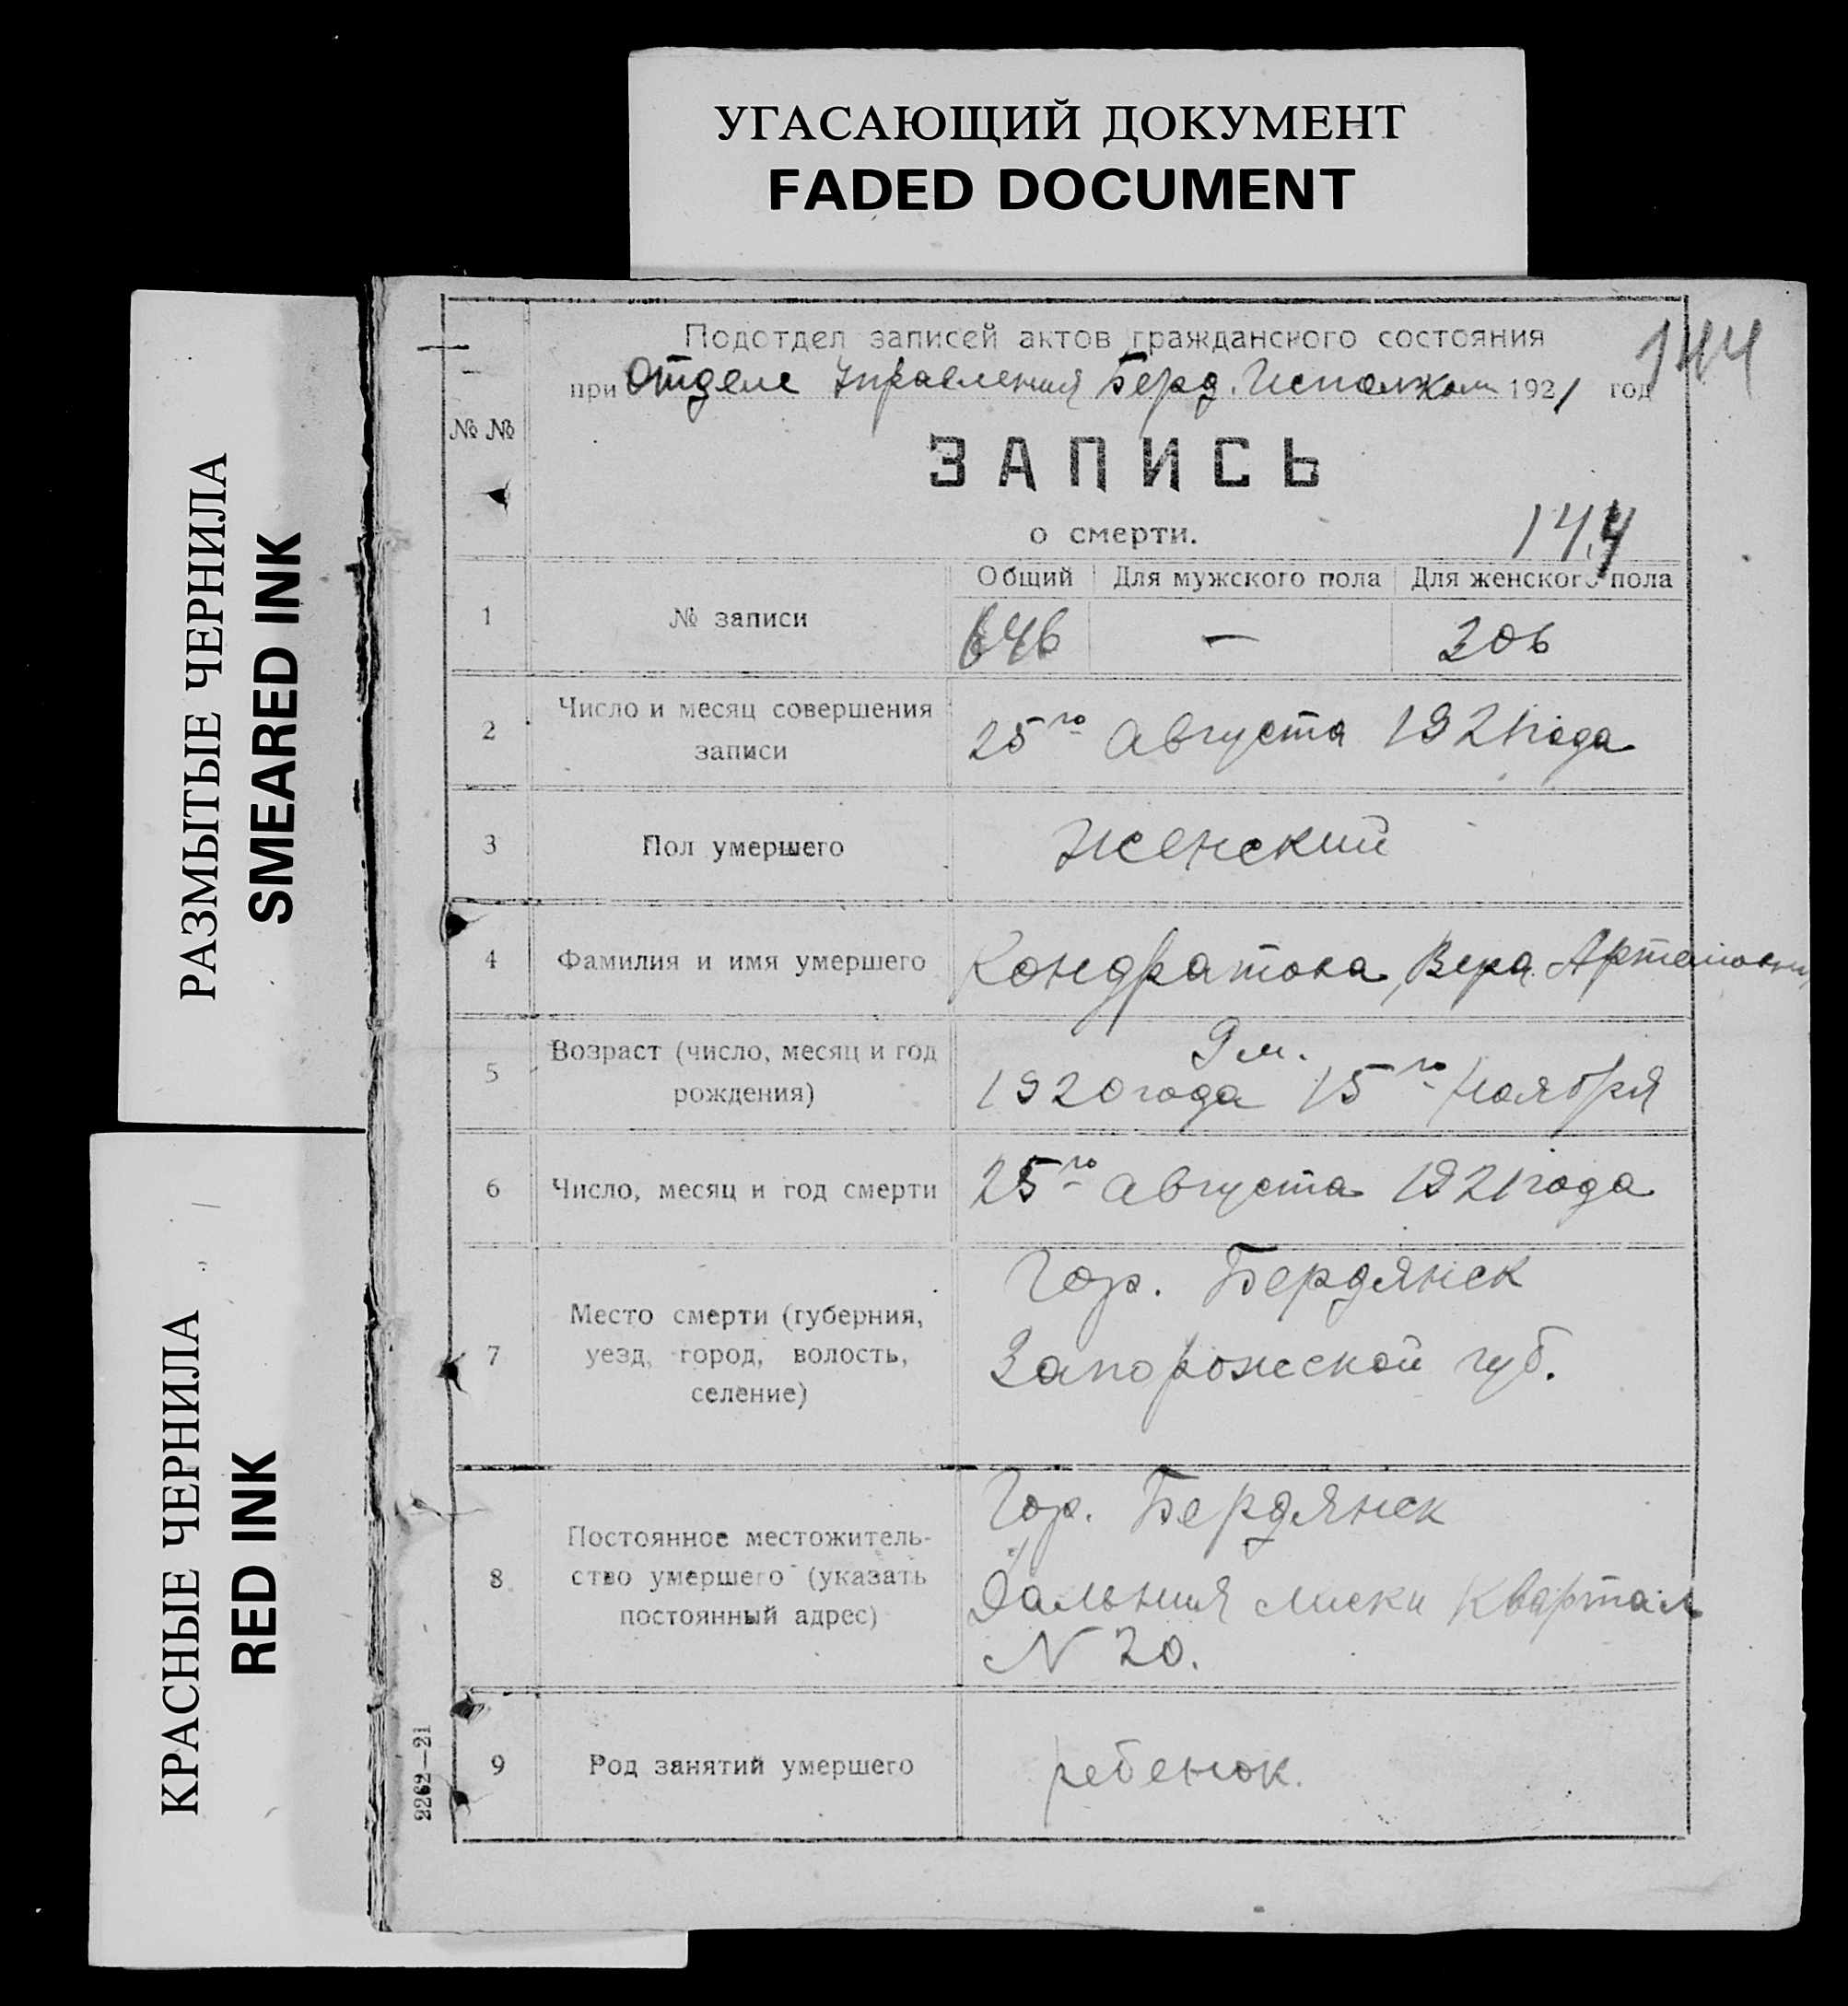 УГАСАЮЩИЙ ДОКУМЕНТ
FADED DOCUMENT
РАЗМЫТЫЕ ЧЕРНИЛА
SMEARED INK
КРАСНЫЕ ЧЕРНИЛА
RED INK
Подотдел записей актов гражданского состояния
144
при Отделе Управления Берд. Исполком 1921 год
№ №
ЗАПИСЬ
о смерти.
144
Общий Для мужского пола Для женского пола
1 № записи 646 — 306
2 Число и месяц совершения
записи
25го Августа 1921 года
3 Пол умершего Женский
4 Фамилия и имя умершего Кондратова, Вера
5 Возраст (число, месяц и год
рождения)
9 м.
1920 года 15го Ноября
6 Число, месяц и год смерти 25го Августа 1921 года
7 Место смерти (губерния,
уезд, город, волость,
селение)
Гор. Бердянск
Запорожской губ.
8 Постоянное местожитель-
ство умершего (указать
постоянный адрес)
Гор. Бердянск
Дальния Лиски Квартал
N 20.
9 Род занятий умершего ребенок.
2262—21